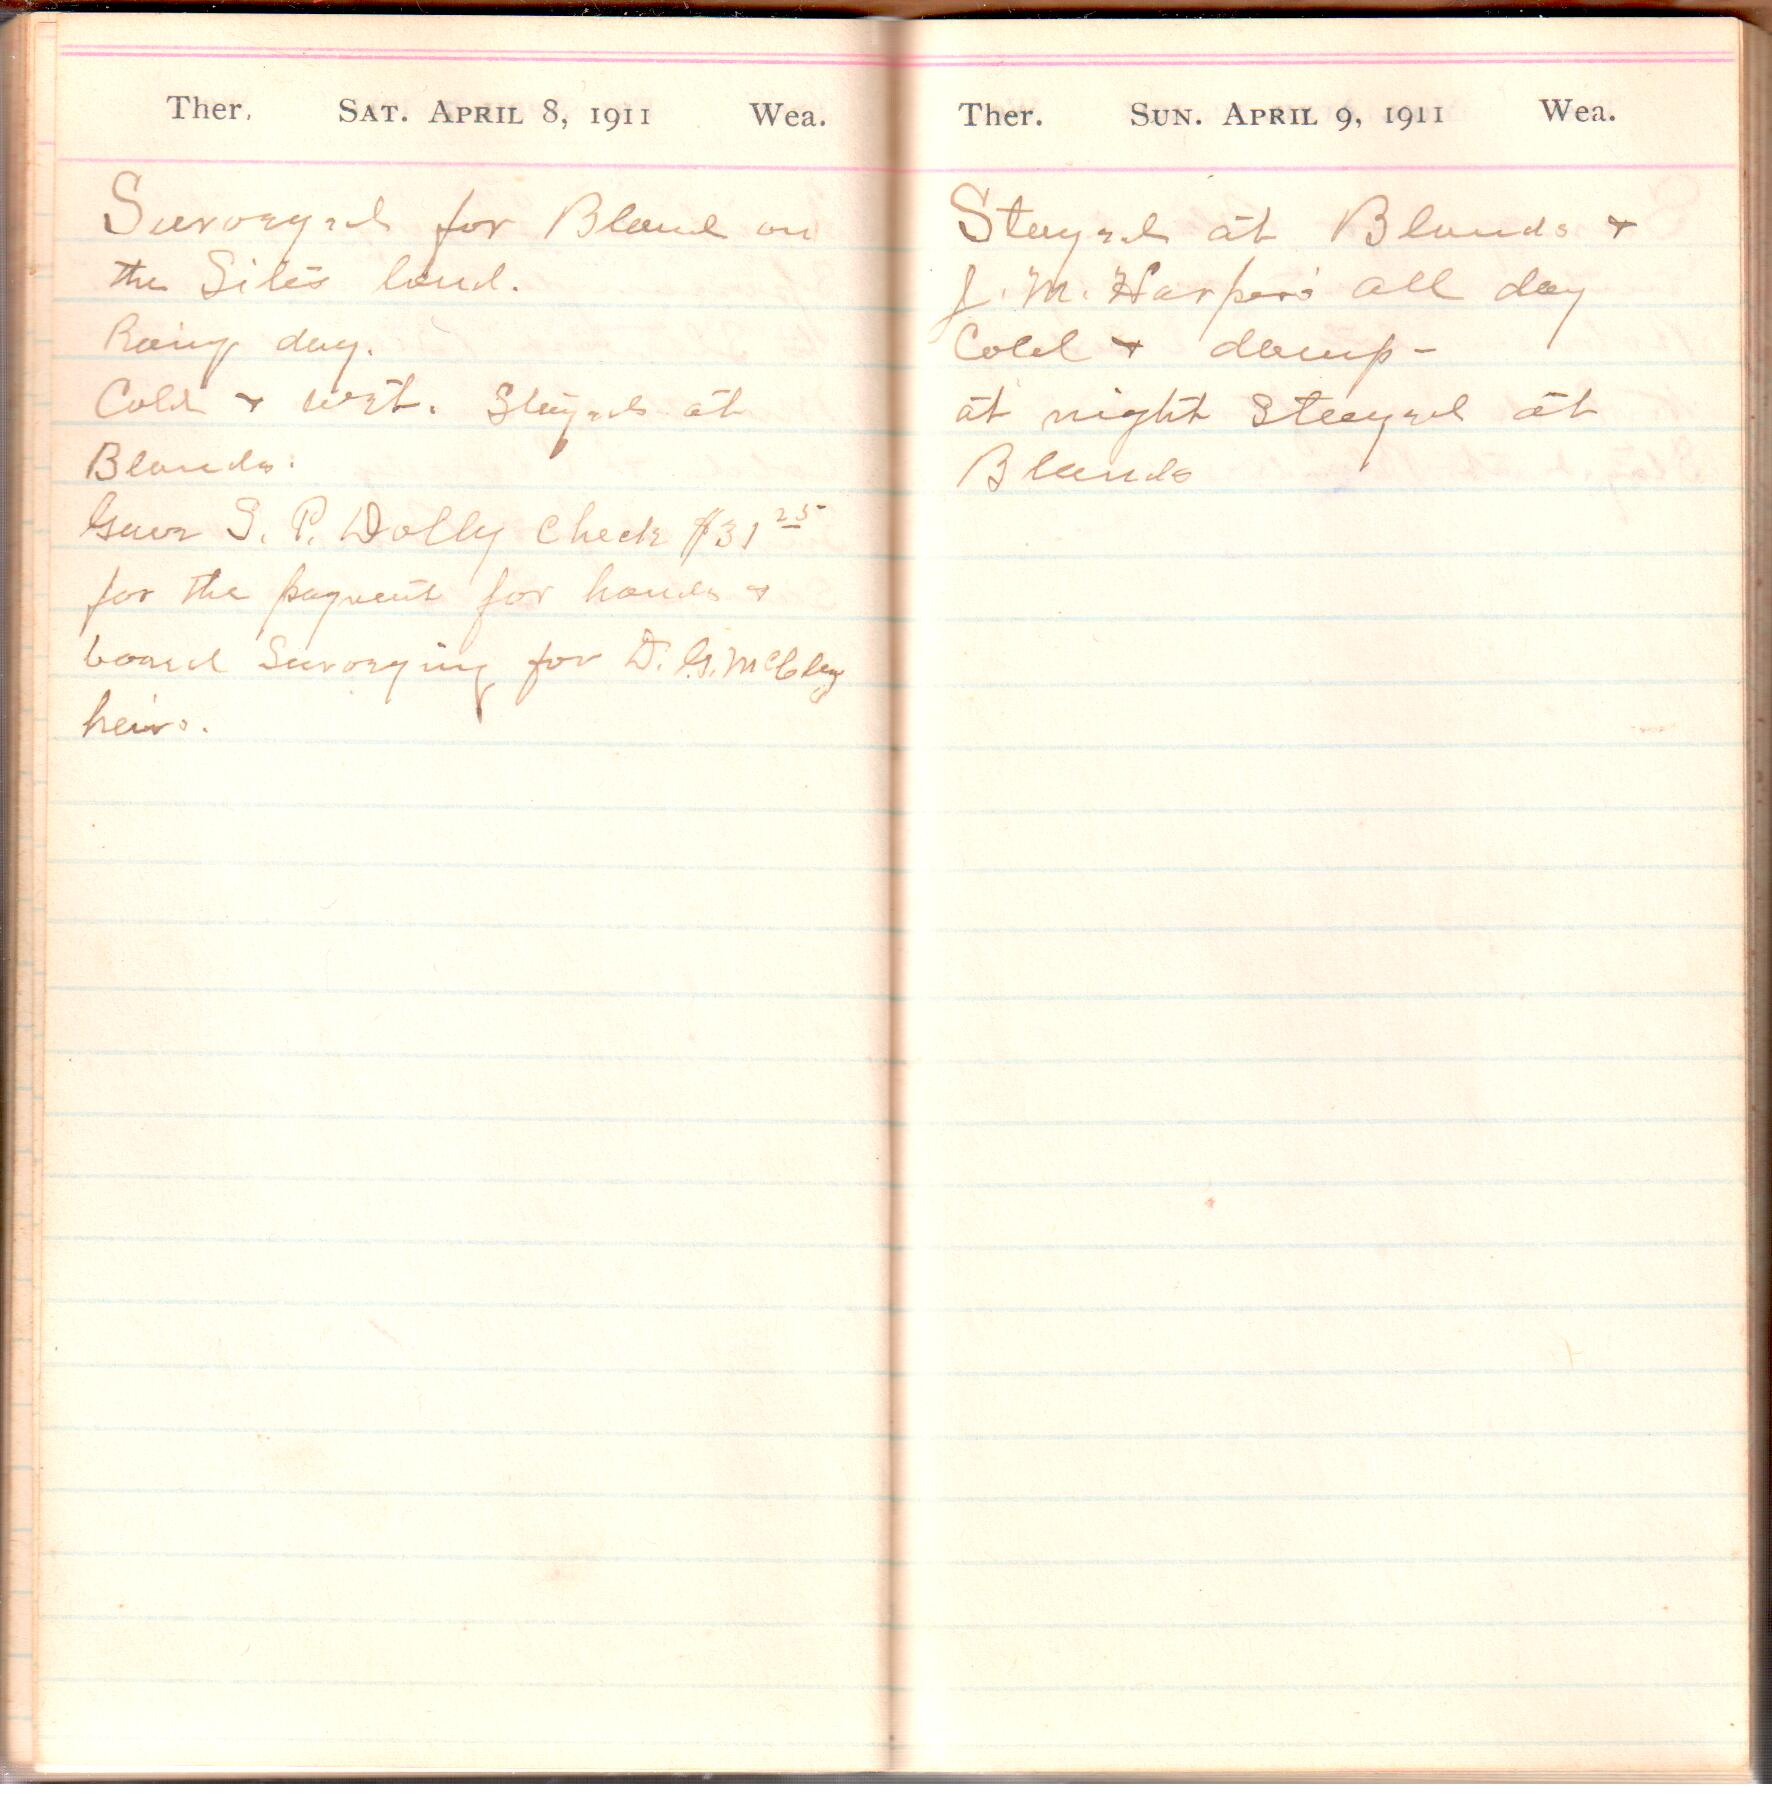 Ther. Sat. April 8, 1911 Wea.
Surveyed for Bland on
the Sites land.
Rainy day.
Cold & wet. Stayed at
Blands.
Gave S. P. Dolly Check $31 25
for the payment for hands &
board Surveying for D. G. McClay
heirs.
Ther. Sun. April 9, 1911 Wea.
Stayed at Blands &
J. M. Harper's all day
Cold & damp -
at night Stayed at
Blands